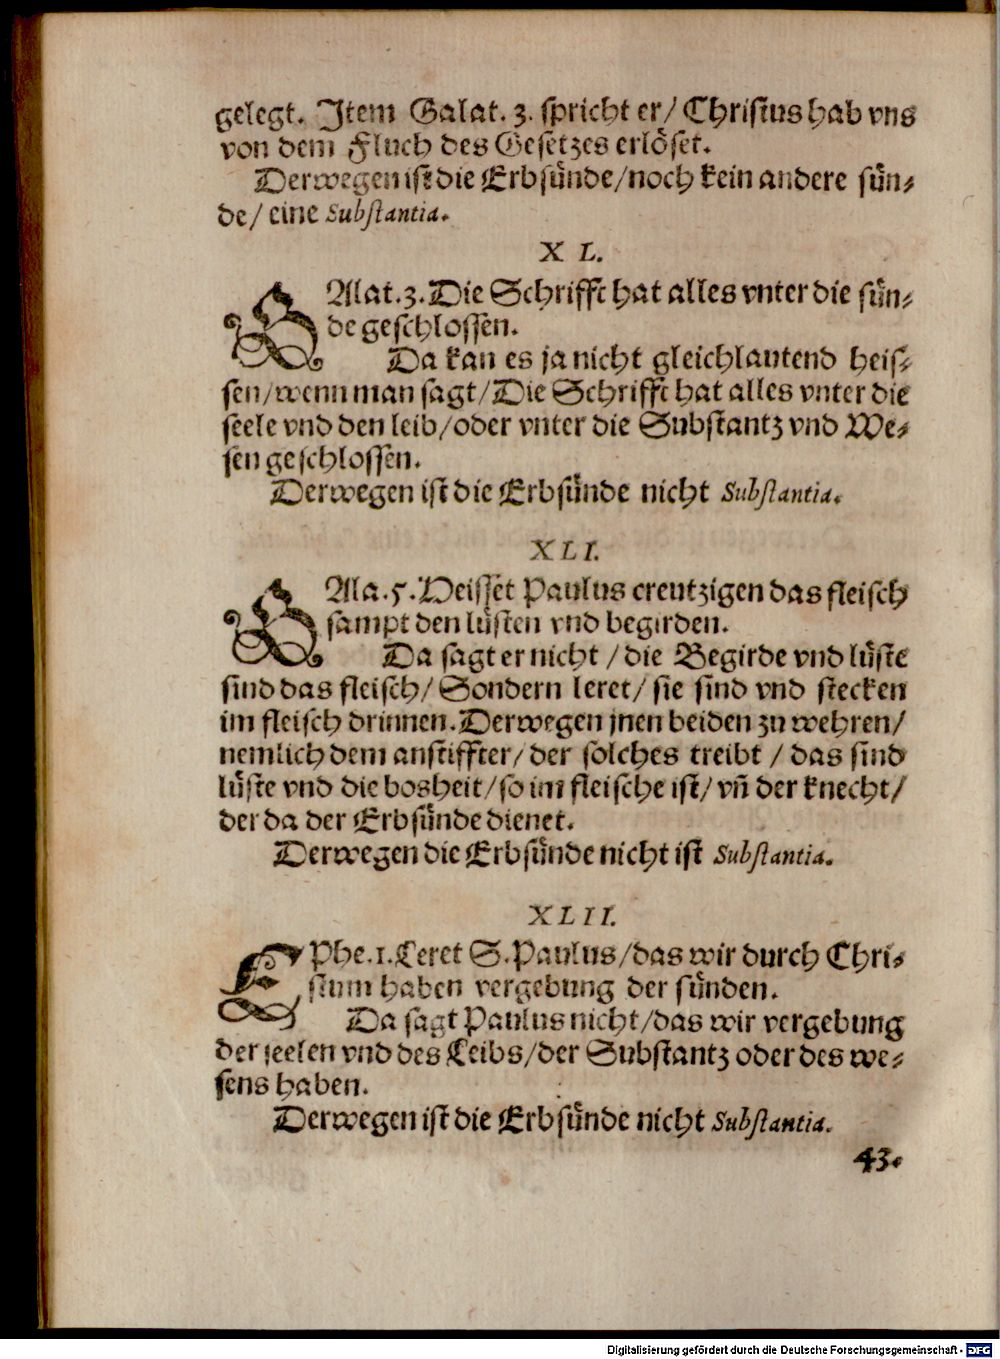 gelegt. Jtem Galat. 3. spricht er/ Christus hab vns
von dem Fluch des Gesetzes erlöset.
Derwegen ist die Erbsünde/noch kein andere sün-
de/ eine Substantia.
X L.
GAlat.3. Die Schrifft hat alles vnter die sün-
de geschlossen.
Da kan es ja nicht gleichlautend heis-
sen/wenn man sagt/Die Schrifft hat alles vnter die
seele vnd den leib/oder vnter die Substantz vnd We-
sen geschlossen.
Derwegen ist die Erbsünde nicht Substantia.
XLI.
GAla.5. Heisset Paulus creutzigen das fleisch
sampt den lüsten vnd begirden.
Da sagt er nicht / die Begirde vnd lüste
sind das fleisch/ Sondern leret/ sie sind vnd stecken
im fleisch drinnen. Derwegen jnen beiden zu wehren/
nemlich dem anstiffter/ der solches treibt / das sind
lüste vnd die bosheit/so im fleische ist/ vñ der knecht/
der da der Erbsünde dienet.
Derwegen die Erbsünde nicht ist Substantia.
XLII.
EPhe.1. Leret S. Paulus/das wir durch Chri-
stum haben vergebung der sünden.
Da sagt Paulus nicht/das wir vergebung
der seelen vnd des Leibs/der Substantz oder des we-
sens haben.
Derwegen ist die Erbsünde nicht Substantia.
43.
Digitalisierung gefördert durch die Deutsche Forschungsgemeinschaft - DFG